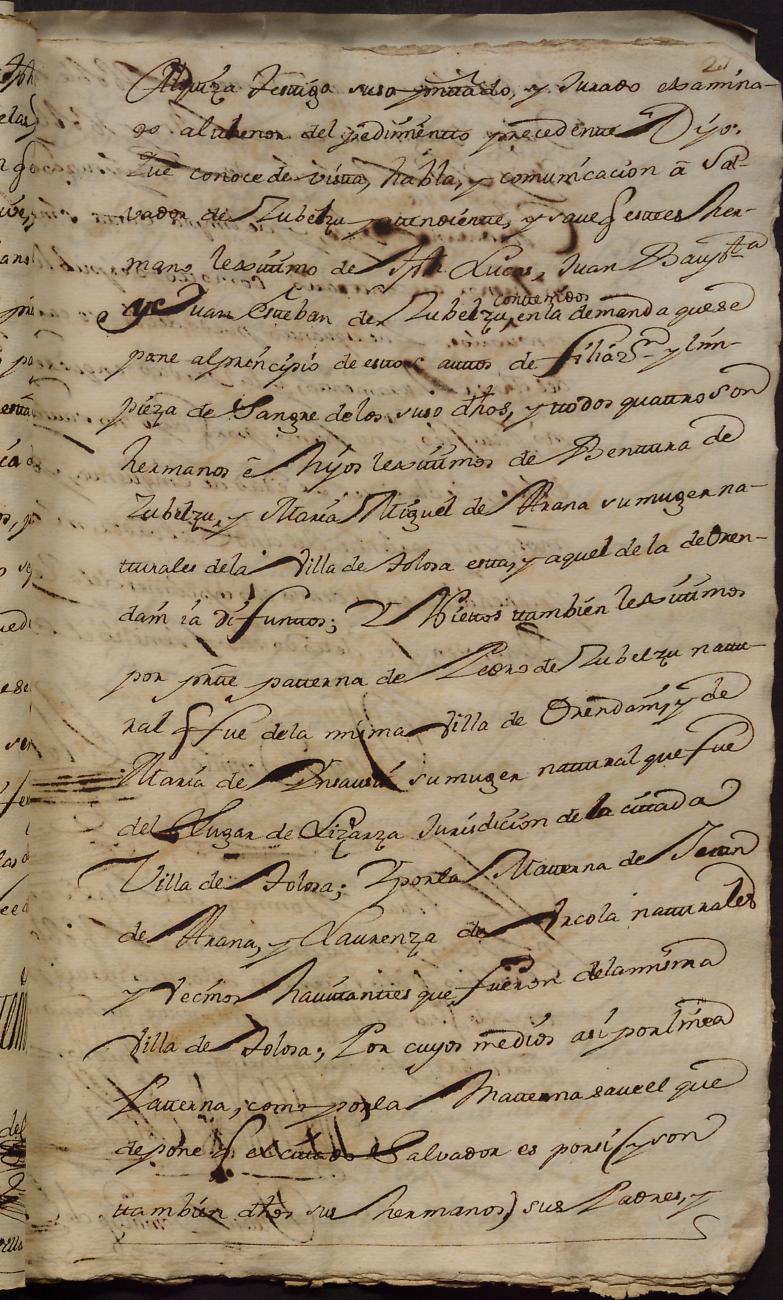 Alquiza testigo suso pñttado, y Jurado examina-
do al thenor del pedimentto precedentte Dijo.
Que conoce de vistta, habla, y comunicacion â Sal-
vador de Zubelzu pttendientte, y save q estte es her-
mano lexittimo de Jph Lucas, Juan Bauptta
y Juan Esteban de Zubelzu, conttenidos en la demanda que se
pone al principio de esttos auttos de filiazon y lim-
pieza de Sangre de los suso dhos, y ttodos quattro son
hermanos ê hijos lexittimos de Benttura de
Zubelzu, y Maria Miguel de Arana su muger na-
tturales de la Villa de Tolosa estta, y aquel de la de Oren-
dain ia difunttos; Y Niettos ttambien lexittimos
por partte patterna de Pedro de Zubelzu nattu-
ral q fue de la misma Villa de Orendain, y de
Maria de su muger nattural que fue
del Lugar de Lizarza Jurisdicion de la cittada
Villa de Tolosa; Y por la Matterna de Juan
de Arana, y Laurenza de Ercola natturales
y vecinos havittanttes que fueron de la misma
Villa de Tolosa; Por cuyos medios asi por linea
Patterna, como por la Matterna save el que
depone q el cittado Salvador es por si (y son
ttambien dhos sus hermanos) sus Padres, y